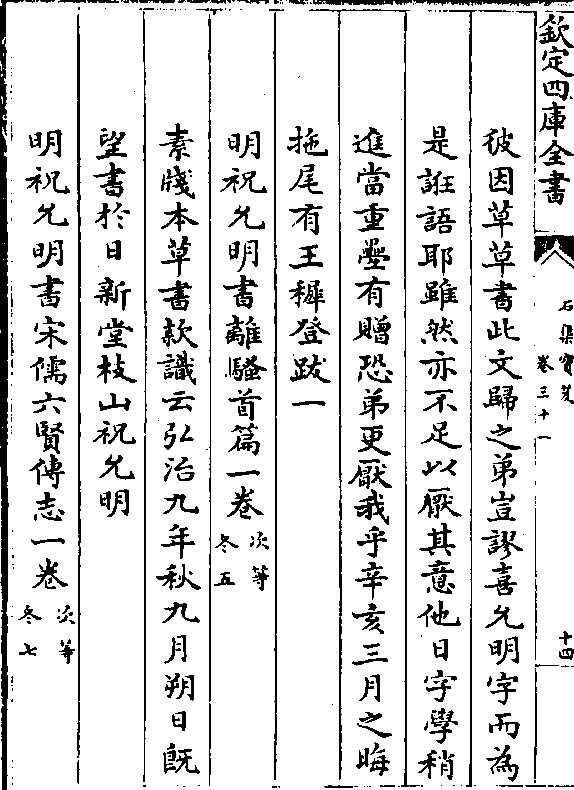 欽定四庫全書
石渠寶笈
卷三十一
十四
彼因草草書此文歸之弟豈謬喜允明字而為
是誑語耶雖然亦不足以厭其意他日字學稍
進當重疊有贈恐弟更厭我乎辛亥三月之晦
拖尾有王穉登跋一
明祝允明書離騷首篇一卷 次等
冬五
素牋本草書款識云弘治九年秋九月朔日旣
望書於日新堂枝山祝允明
明祝允明書宋儒六賢傳志一卷 次等
冬七